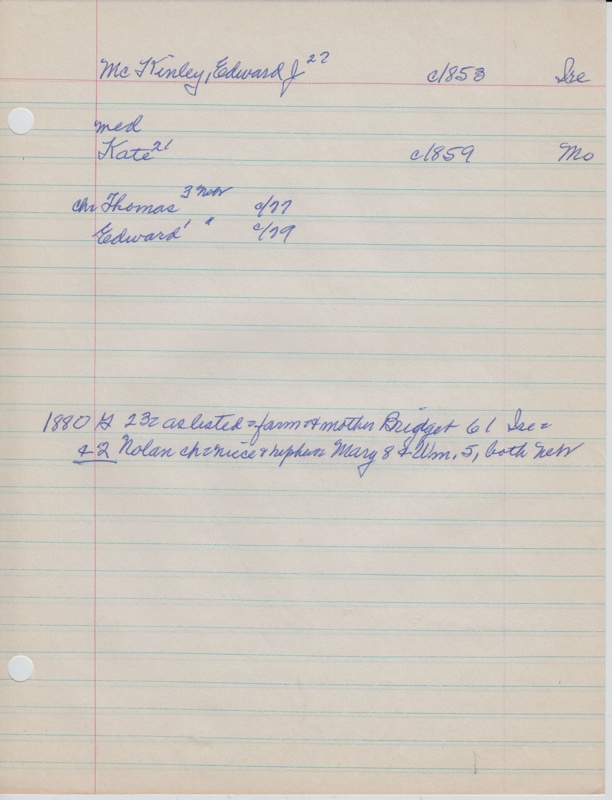 McKinley, Edward J 27 c1853 Ire
med
Kate 21 c1859 Mo
ch Thomas 3 Nebr c/77
Edward 1 " c/79
1880 23 = as listed = farm + mother Bridget 61 Ire =
+ 2 Nolan ch = niece + nephew Mary 8 + Wm. 5, both Nebr